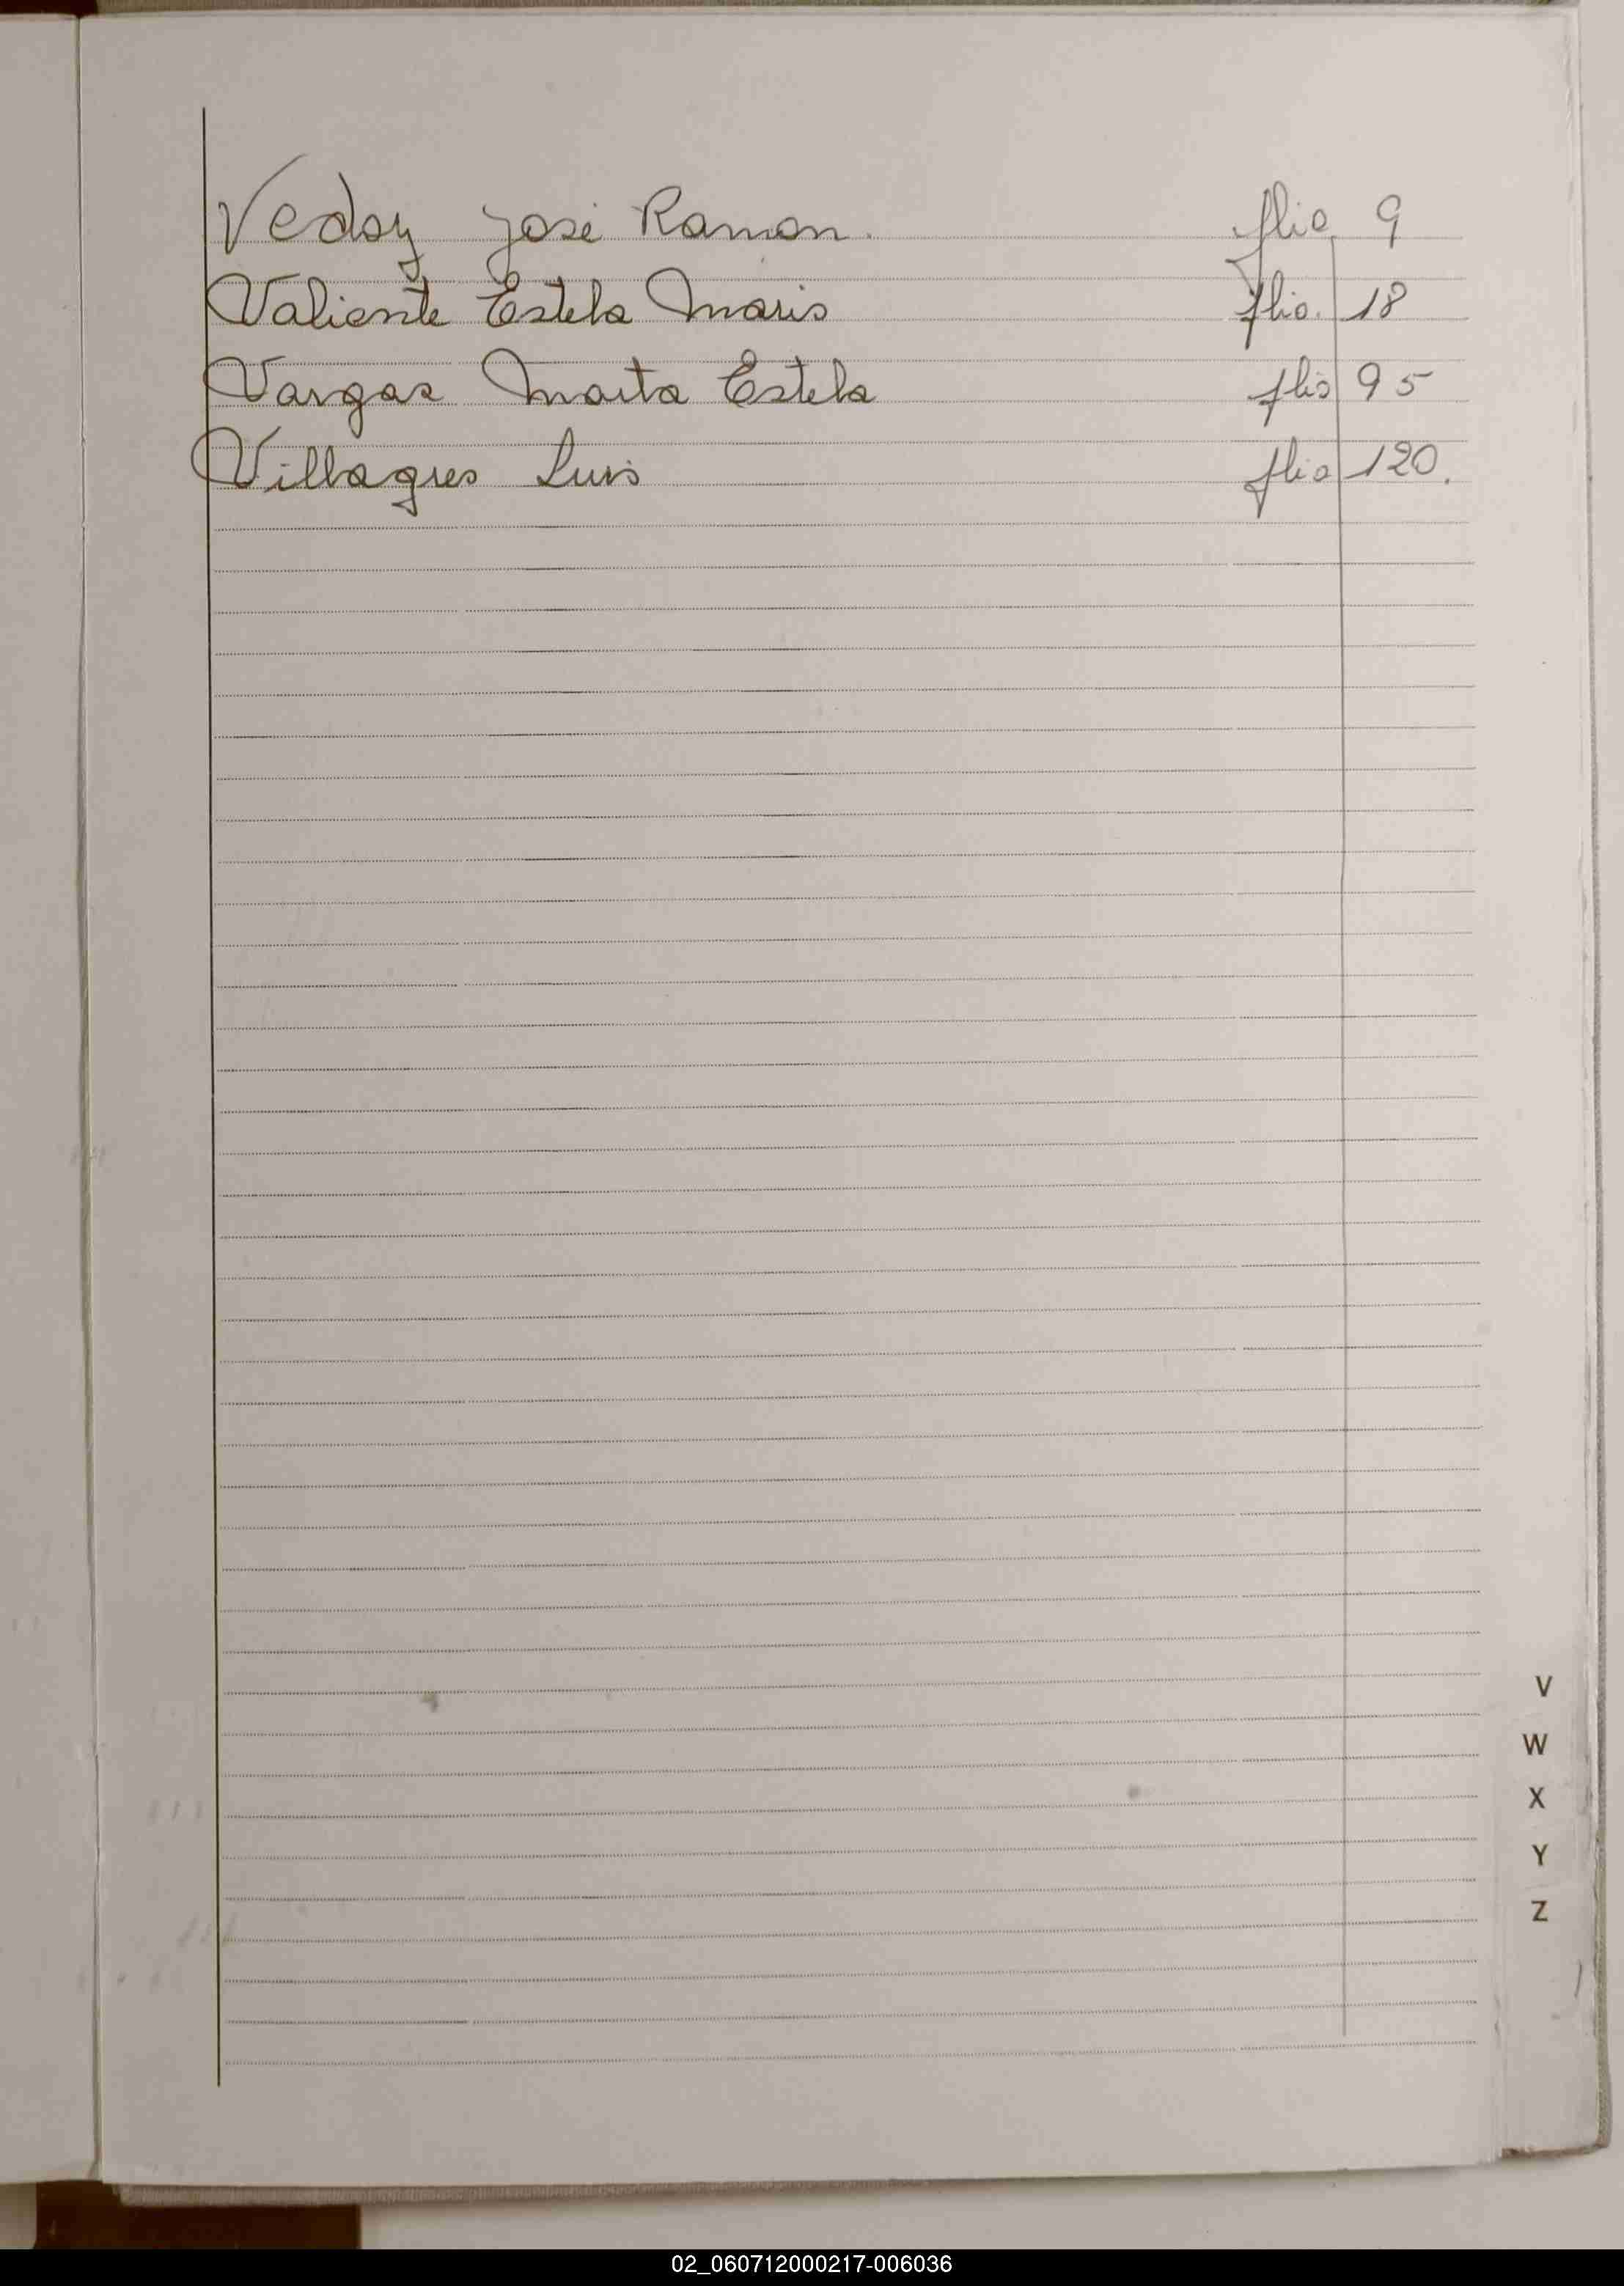 Vedoy José Ramon. flio 9
Valiente Estela Maris flio. 18
Vargas Marta Estela flio 95
Villagres Luis flio 120.
V
W
X
Y
Z
02_060712000217-006036